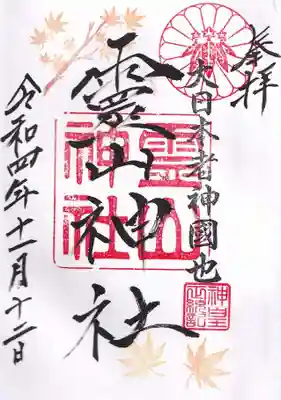 奉拝
大日本者神國也
靈山神社
霊山神社
神皇正統記
令和四年十一月十二日